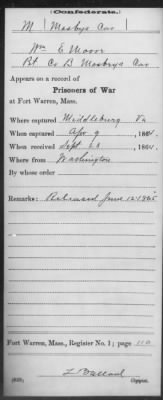 (Confederate.)
M | Mosbys Cav |
Wm E Moore
Pvt Co B Mosbys Cav
Appears on a record of
Prisoners of War
at Fort Warren, Mass.
Where captured Middleburg Va
When captured Apr 9, 1864.
When received Sept 23, 1864.
Where from Washington
By whose order
Remarks: Released June 12 1865
Fort Warren, Mass., Register No. 1; page 110
Copyist.